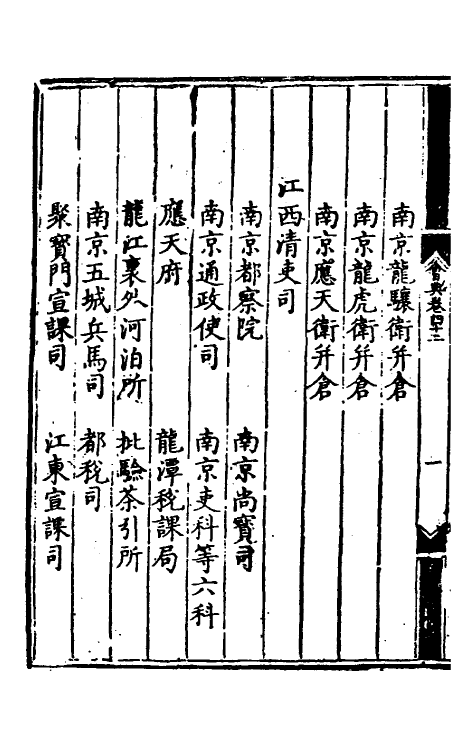 會典卷四十二
一
南京龍驤衛并倉
南京龍虎衛并倉
南京應天衛并倉
江西清吏司
南京都察院　南京尚寶司
南京通政使司　南京吏科等六科
應天府　龍潭稅課局
龍江裏外河泊所　批驗茶引所
南京五城兵馬司　都稅司
聚寳門宣課司　江東宣課司